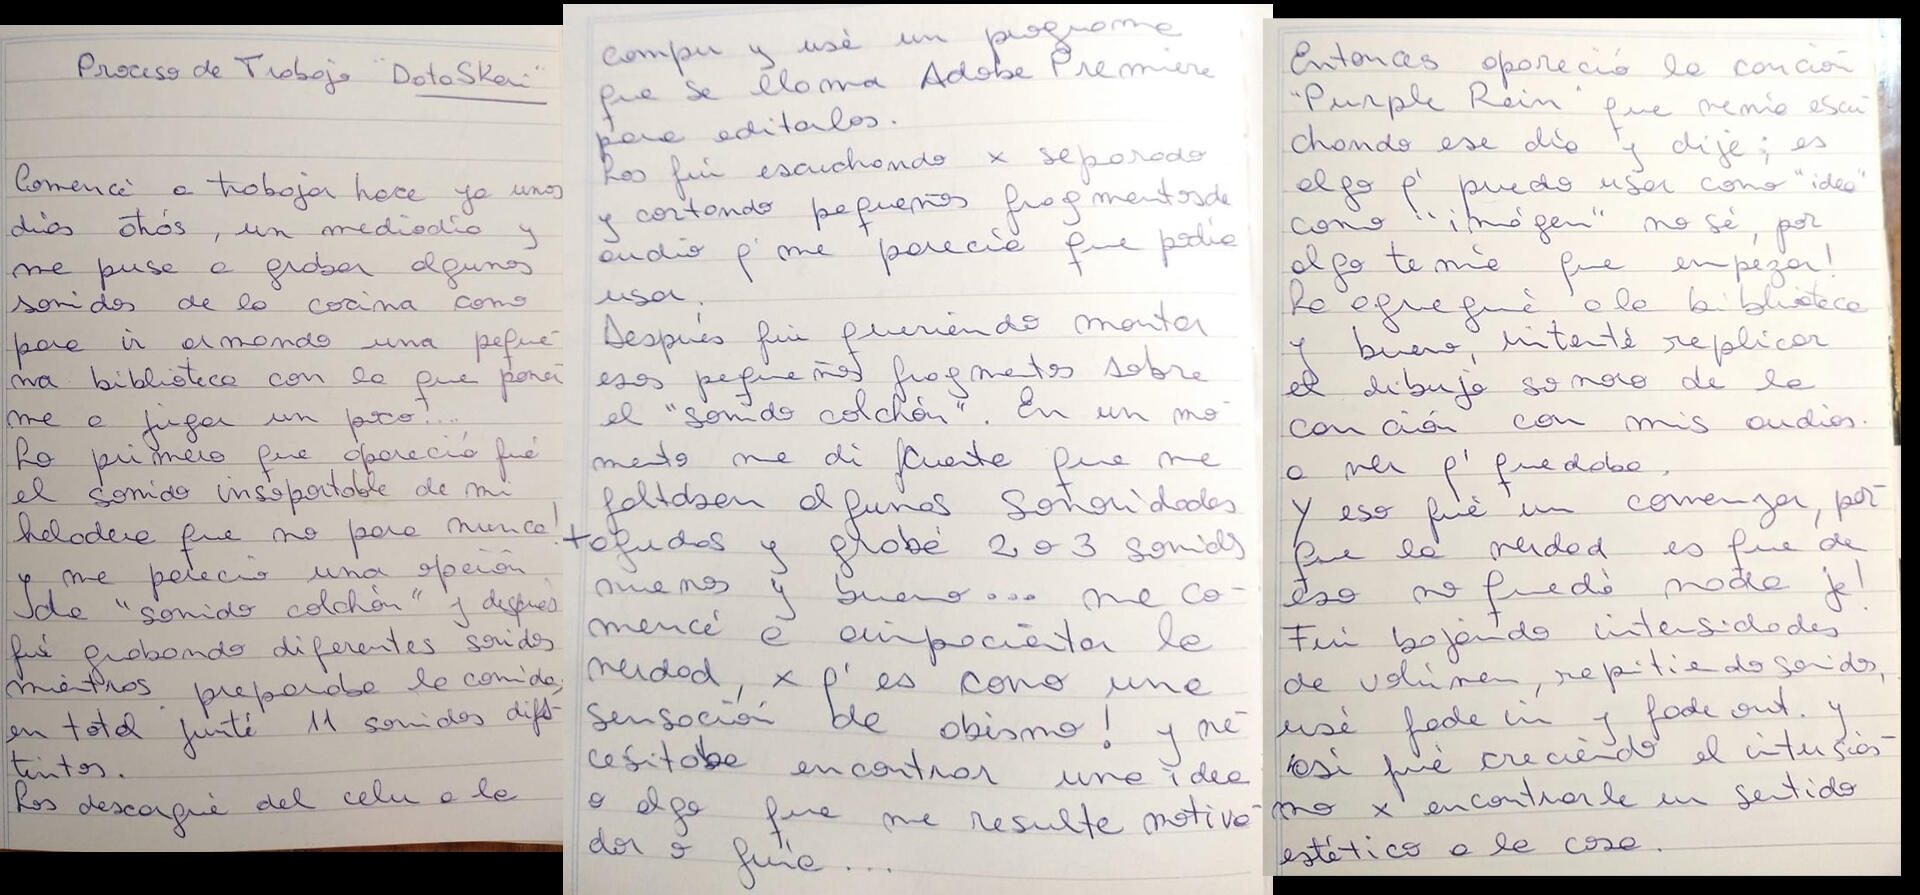 Proceso de Trabajo "DataSkai"
Comencé a trabajar hace ya unos
días atrás, un mediodía y
me puse a grabar algunos
sonidos de la cocina como
para ir armando una peque-
ña biblioteca con la que poner
me a jugar un poco!...
Lo primero que apareció fué
el sonido insoportable de mi
heladera que no para nunca!
y me pareció una opción
de "sonido colchón" y después
fuí grabando diferentes sonidos
mientras preparaba la comida;
en total junté 11 sonidos dis-
tintos.
Los descargué del celu a la
compu y usé un programa
que se llama Adobe Premiere
para editarlos.
Los fui escuchando x separado
y cortando pequeños fragmentos de
audio q' me parecía que podía
usar.
Después fui queriendo montar
esos pequeños fragmentos sobre
el "sonido colchón". En un mo-
mento me di cuenta que me
faltaban algunas sonoridades
+ agudas y grabé 2 o 3 sonids
nuevos y bueno... me co-
mencé a impacientar la
verdad, x q' es como una
sensación de abismo! y ne-
cesitaba encontrar una idea
o algo que me resulte motiva-
dor o guía...
Entonces apareció la canción
"Purple Rain" que venía escu-
chando ese día y dije; es
algo q' puedo usar como "idea"
como "imágen" no sé, por
algo tenía que empezar!
La agregué a la biblioteca
y bueno, intenté replicar
el dibujo sonoro de la
canción con mis audios.
a ver q' quedaba.
Y eso fué un comenzar, por-
que la verdad es que de
eso no quedó nada je!
Fui bajando intensidades
de volúmen, repitiendo sonidos,
usé fade in y fade out. y
así fué creciendo el intusiás-
mo x encontrarle un sentido
estético a la cosa.